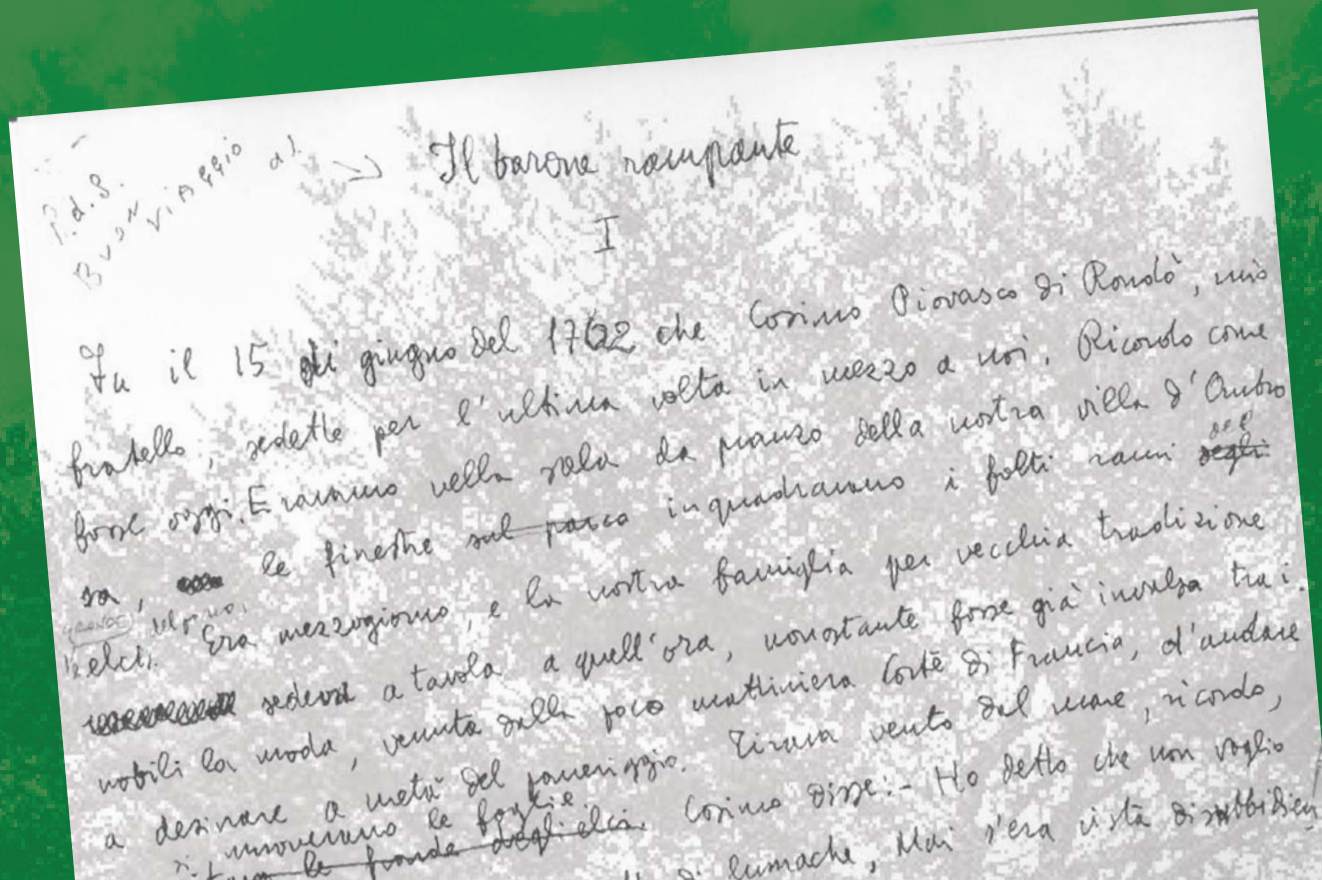 P.d.S.
BUON VIAGGIO al → Il barone rampante
I
Fu il 15 di giugno del 1722 che Cosimo Piovasco di Rondò, mio
fratello, sedette per l'ultima volta in mezzo a noi. Ricordo come
fosse oggi. Eravamo nella sala da pranzo della nostra villa d'Ombro
sa, le finestre sul parco inquadravano i folti rami degli del
elci. Era mezzogiorno, e la nostra famiglia per vecchia tradizione
sedeva a tavola a quell'ora, nonostante fosse già invalsa tra i
nobili la moda, venuta dalla poco mattiniera Corte di Francia, d'andare
a desinare a metà del pomeriggio. Tirava vento dal mare, ricordo,
si muovevano le foglie
le fronde degli elci. Cosimo disse: - Ho detto che non voglio
di lumache, Mai s'era vista disubbidien